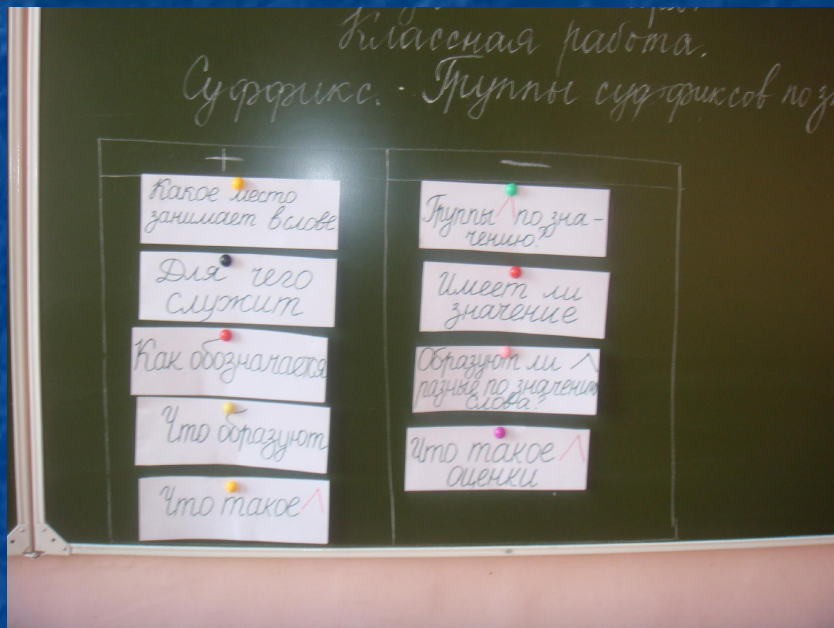 Классная работа.
Суффикс. Группы суффиксов по з
+
—
Какое место
занимает в слове
Для чего
служит
Как обозначается
Что образуют
Что такое ^
Группы ^ по зна-
чению?
Имеет ли
значение
Образуют ли ^
разные по значению
слова?
Что такое ^
оценки